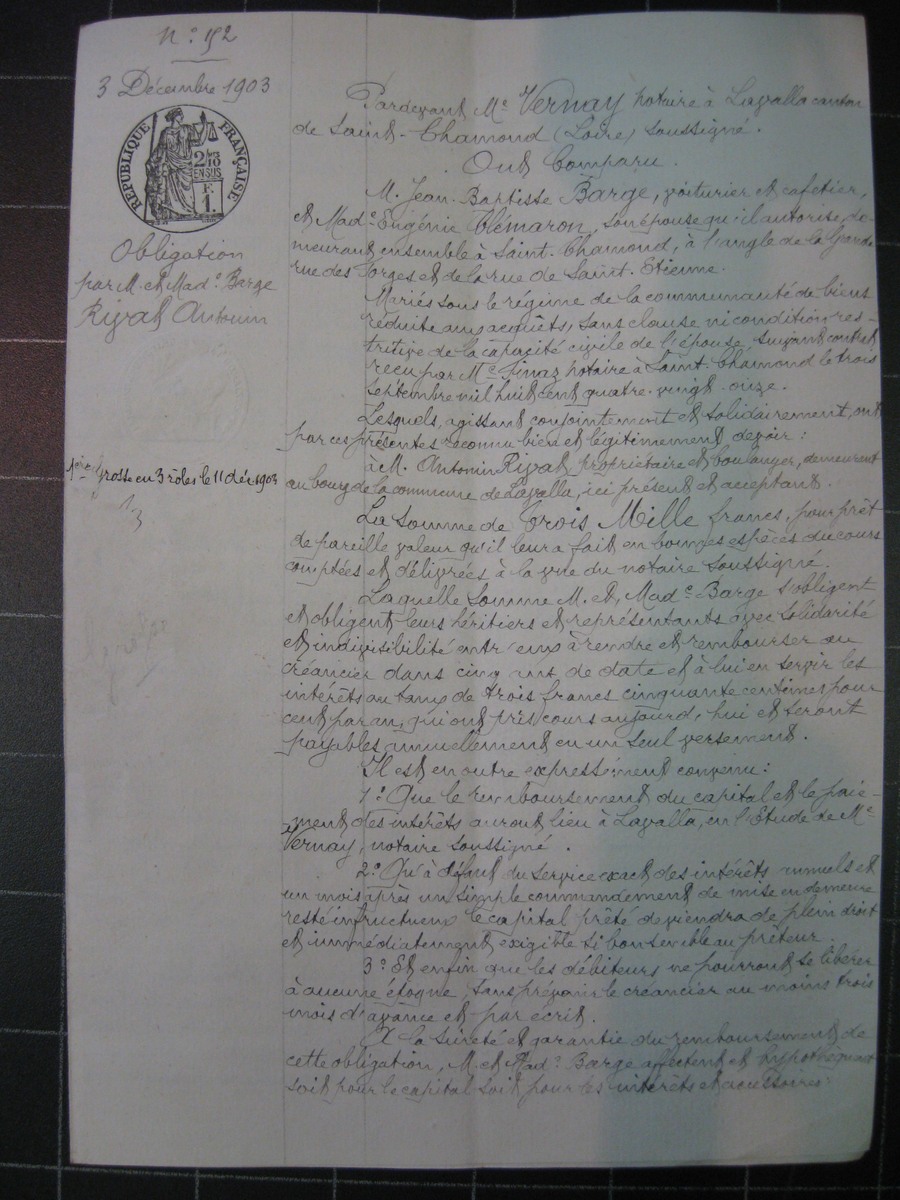 N° 152
3 Décembre 1903
REPUBLIQUE FRANÇAISE
2/10
EN SUS
F.
1.
Obligation
par M. et Mad.e Barge
Rivat Antonin
1ère Grosse en 3 rôles le 11 déc 1903
Pardevant Me Vernay notaire à Lavalla canton
de Saint-Chamond (Loire) soussigné.
Ont Comparu.
M. Jean-Baptiste Barge, voiturier et cafetier,
et Made Eugénie Clémaron, son épouse qu'il autorise, de-
meurant ensemble à Saint-Chamond, à l'angle de la Grande
rue des Forges et de la rue de Saint-Etienne.
Mariés sous le régime de la communauté de biens
réduite aux acquêts, sans clause ni condition res-
trictive de la capacité civile de l'épouse, suivant contrat
reçu par Me Finaz notaire à Saint-Chamond le trois
septembre mil huit cent quatre-vingt-onze.
Lesquels, agissant conjointement et solidairement, ont
par ces présentes reconnu bien et légitimement devoir:
à M. Antonin Rivat, propriétaire et boulanger, demeurant
au bourg de la commune de Lavalla, ici présent et acceptant.
La somme de trois Mille francs, pour prêt
de pareille valeur qu'il leur a fait en bonnes espèces du cours
comptées et délivrées à la vue du notaire soussigné.
Laquelle somme M. et Made Barge s'obligent
et obligent leurs héritiers et représentants avec solidarité
et indivisibilité entr'eux à rendre et rembourser au
créancier dans cinq ans de date et à lui en servir les
intérêts au taux de trois francs cinquante centimes pour
cent par an, qui ont pris cours aujourd'hui et seront
payables annuellement en un seul versement.
Il est en outre expressément convenu:
1° Que le remboursement du capital et le paie-
ment des intérêts auront lieu à Lavalla, en l'Etude de Me
Vernay, notaire soussigné.
2° Qu'à défaut du service exact des intérêts annuels et
un mois après un simple commandement de mise en demeure
resté infructueux le capital prêté deviendra de plein droit
et immédiatement exigible si bon semble au prêteur.
3° Et enfin que les débiteurs ne pourront se libérer
à aucune époque, sans prévenir le créancier au moins trois
mois d'avance et par écrit.
A la sûreté et garantie du remboursement de
cette obligation, M. et Made Barge affectent et hypothèquent
soit pour le capital soit pour les intérêts et accessoires: